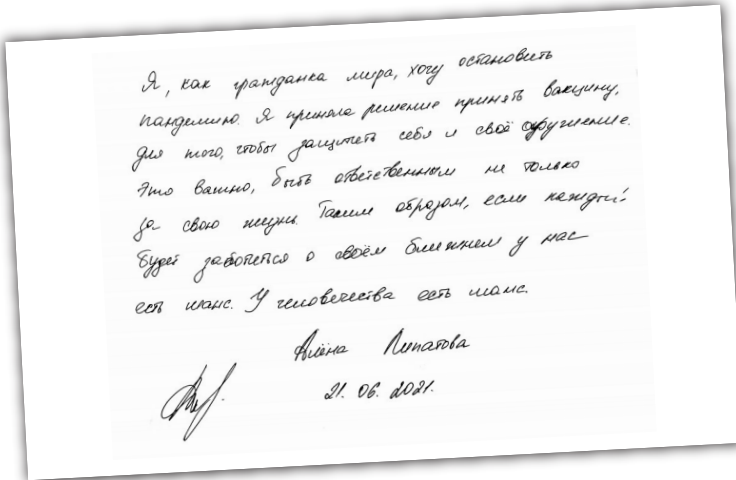 Я, как гражданка мира, хочу остановить
пандемию. Я приняла решение принять вакцину,
для того, чтобы защитить себя и своё окружение.
Это важно, быть ответственным не только
за свою жизнь. Таким образом, если каждый
будет заботиться о своём ближнем у нас
есть шанс. У человечества есть шанс.
Алёна Липатова
21. 06. 2021.